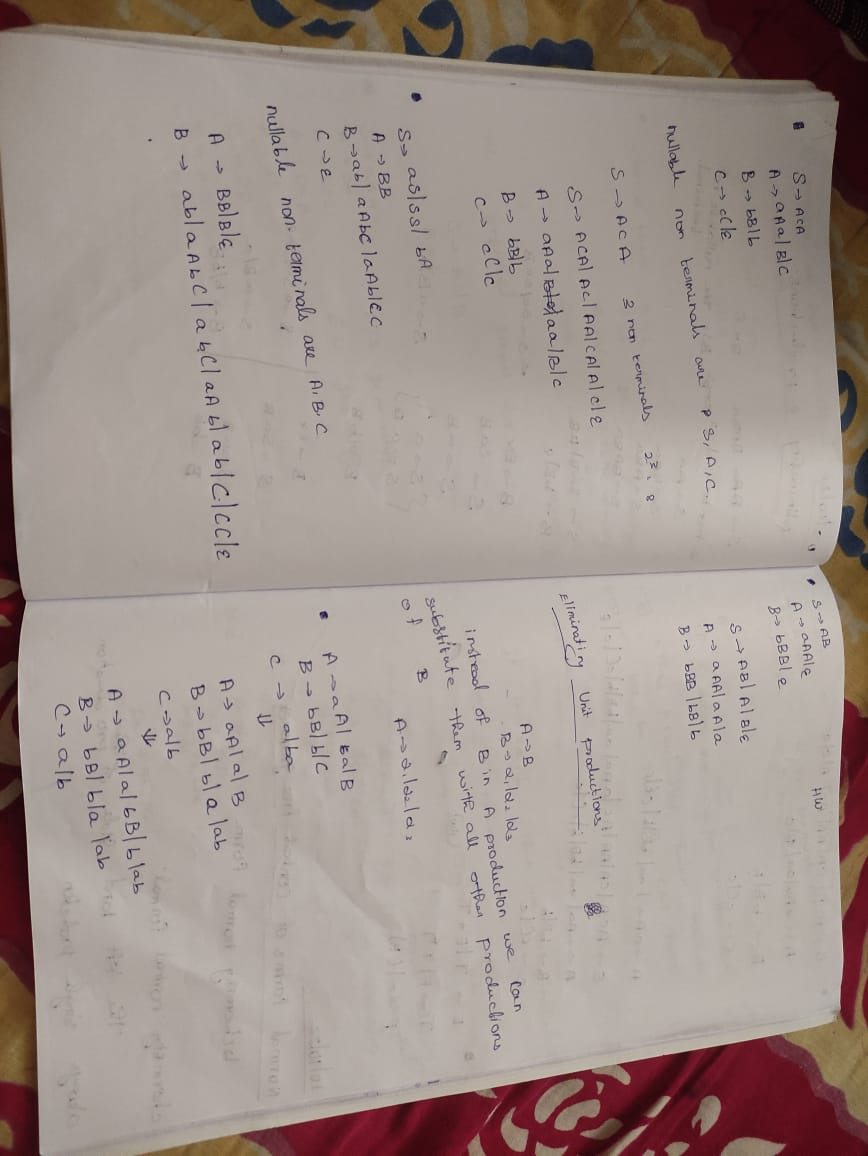 S → ACA
A → aAa|B|C
B → bB|b
C → cC|ε
nullable non terminals are S, A, C
S → ACA 3 non terminals 2³ = 8
S → ACA|AC|AA|CA|A|C|ε
A → aAa|aa|B|C
B → bB|b
C → cC|c
S → aS|SS|bA
A → BB
B → ab|aAbC|aAb|CC
C → ε
nullable non-terminals are A, B, C
A → BB|B|ε
B → ab|aAbC|abC|aAb|ab|C|CC|ε
HW
S → AB
A → aAA|ε
B → bBB|ε
S → AB|A|B|ε
A → aAA|aA|a
B → bBB|bB|b
Eliminating Unit productions
A → B
B → α₁|α₂|α₃
instead of B in A production we can
substitute them with all other productions
of B
A → α₁|α₂|α₃
A → aA|a|B
B → bB|b|C
C →
⇓
A → aA|a|B
B → bB|b|a|ab
C → a|b
⇓
A → aA|a|bB|b|ab
B → bB|b|a|ab
C → a|b